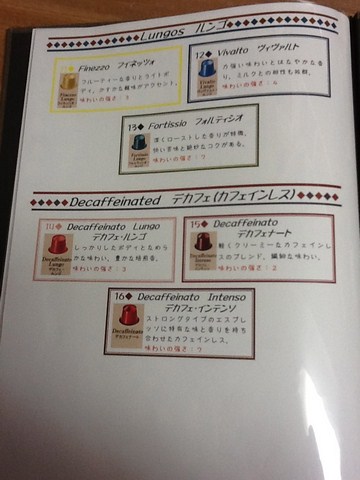 Lungos ルンゴ
Finezzo フィネッツォ
フルーティーな香りとライトボ
ディ。かすかな酸味がアクセント。
味わいの強さ:3
12◆ Vivalto ヴィヴァルト
力強い味わいとはなやかな香
り。ミルクとの相性も抜群。
味わいの強さ:4
13◆ Fortissio フォルティシオ
深くローストした香りが特徴。
快い苦味と絶妙なコクがある。
味わいの強さ:7
Decaffeinated デカフェ(カフェインレス)
14◆ Decaffeinato Lungo
デカフェ・ルンゴ
しっかりしたボディとなめら
かな味わい。豊かな焙煎香。
味わいの強さ:3
15◆ Decaffeinato
デカフェナート
軽くクリーミーなカフェインレ
スのブレンド。繊細な味わい。
味わいの強さ:2
16◆ Decaffeinato Intenso
デカフェ・インテンソ
ストロングタイプのエスプレ
ッソに特有な味と香りを持ち
合わせたカフェインレス。
味わいの強さ:7